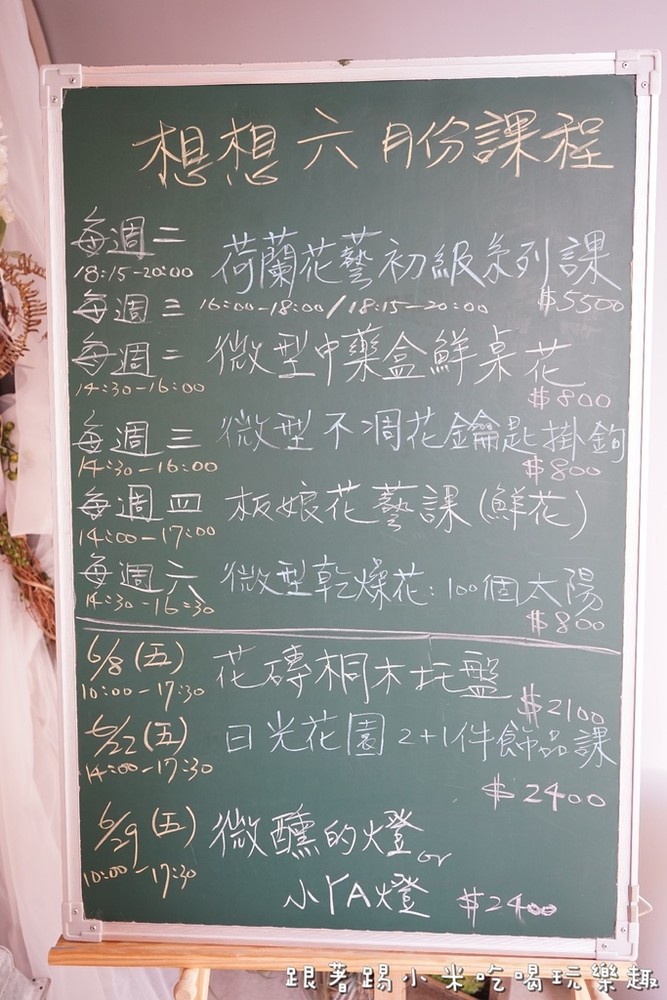 想想六月份課程
每週二 荷蘭花藝初級系列課
18:15-20:00 $5500
每週三 16:00-18:00/18:15-20:00
每週二 微型中藥盒鮮桌花
14:30-16:00 $800
每週三 微型不凋花鑰匙掛鉤
14:30-16:00 $800
每週四 板娘花藝課(鮮花)
14:00-17:00
每週六 微型乾燥花:100個太陽
14:30-16:30 $800
6/8(五) 花磚桐木托盤
10:00-17:30 $2100
6/22(五) 日光花園2+1件飾品課
14:00-17:30 $2400
6/29(五) 微醺的燈or
10:00-17:30 小YA燈 $2400
跟著踢小米吃喝玩樂趣